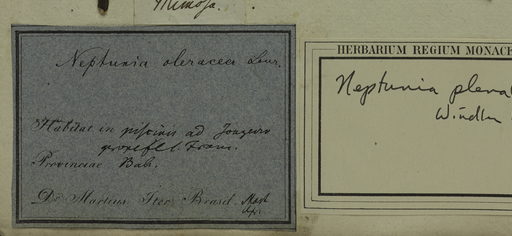 Mimosa.
Neptunia oleracea Lour.
Habitat in piscinis ad Joazeiro
prope fl. S. Franc.
Provinciae Bah.
Dr Martius Iter Brasil.
HERBARIUM REGIUM MONACE
Neptunia plena
Windler